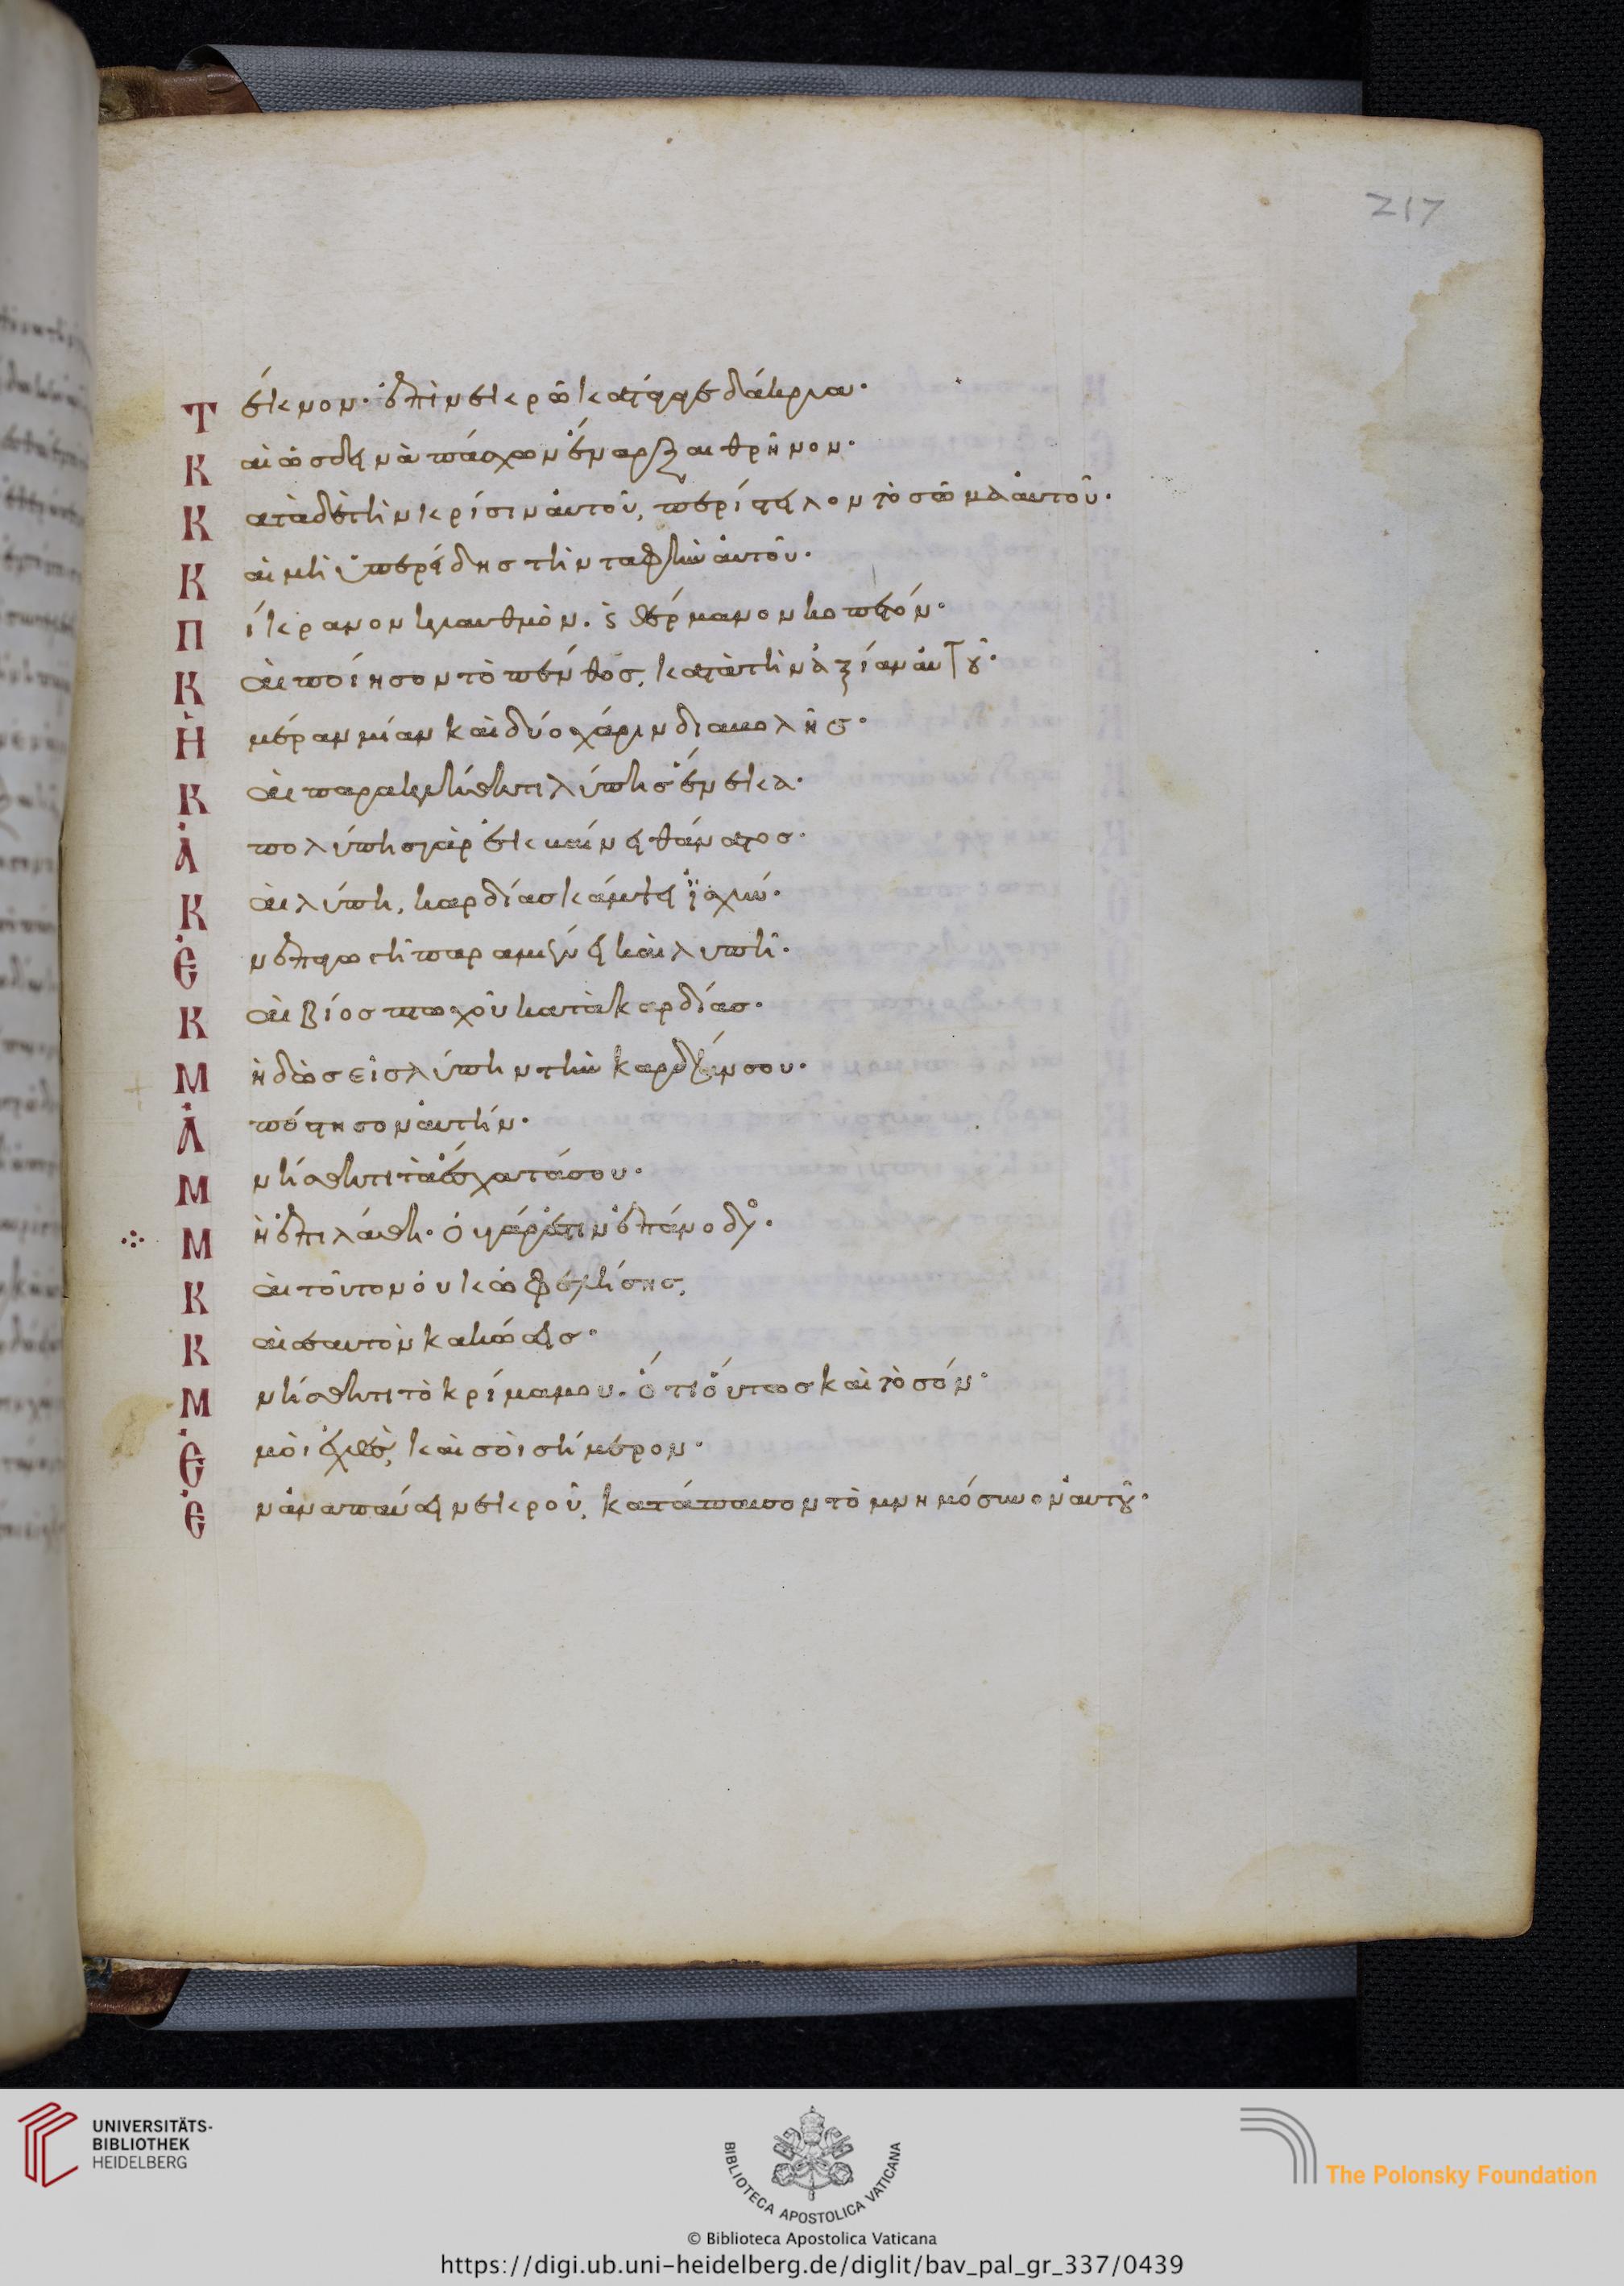 217
Τέκνον· ἐπὶ νεκρῶ κατάγαγε δάκρυα·
Καὶ ὡς δεινὰ πάσχων ἔναρξαι θρήνον·
Κατὰ δὲ τὴν κρίσιν αὐτοῦ, περίστειλον τὸ σῶμα αὐτοῦ·
Καὶ μὴ ὑπερίδης τὴν ταφὴν αὐτοῦ·
Πίκρανον κλαυθμὸν. καὶ θέρμανον κοπετόν·
Καὶ ποίησον τὸ πένθος, κατὰ τὴν ἀξίαν αὐτοῦ·
Ἡμέραν μίαν καὶ δύο χάριν διαβολῆς·
Καὶ παρακλήθητι λύπης ἕνεκα·
Ἀπο λύπης γὰρ ἐκβαίνει θάνατος·
Καὶ λύπη, καρδίας κάμψει ἰσχύν·
Ἐν ἐπαγωγῆ παραμένει καὶ λυπῆ·
Καὶ βίος πτωχοῦ κατὰ καρδίας·
Μὴ δῶς εἰς λύπην τὴν καρδίαν σου·
Ἀπόστησον αὐτήν·
Μνήσθητι τὰ ἔσχατά σου·
Μὴ ἐπιλάθη· οὐ γάρ ἐστιν ἐπάνοδος·
Καὶ τοῦτον οὐκ ὠφελήσης,
Καὶ σεαυτὸν κακώσεις·
Μνήσθητι τὸ κρίμα μου. ὅτι οὕτως καὶ τὸ σόν·
Ἐμοὶ ἐχθὲς, καὶ σοὶ σήμερον·
Ἐν ἀναπαύσει νεκροῦ, κατάπαυσον τὸ μνημόσυνον αὐτοῦ·
UNIVERSITÄTS-
BIBLIOTHEK
HEIDELBERG
BIBLIOTECA APOSTOLICA VATICANA
The Polonsky Foundation
© Biblioteca Apostolica Vaticana
https://digi.ub.uni-heidelberg.de/diglit/bav_pal_gr_337/0439